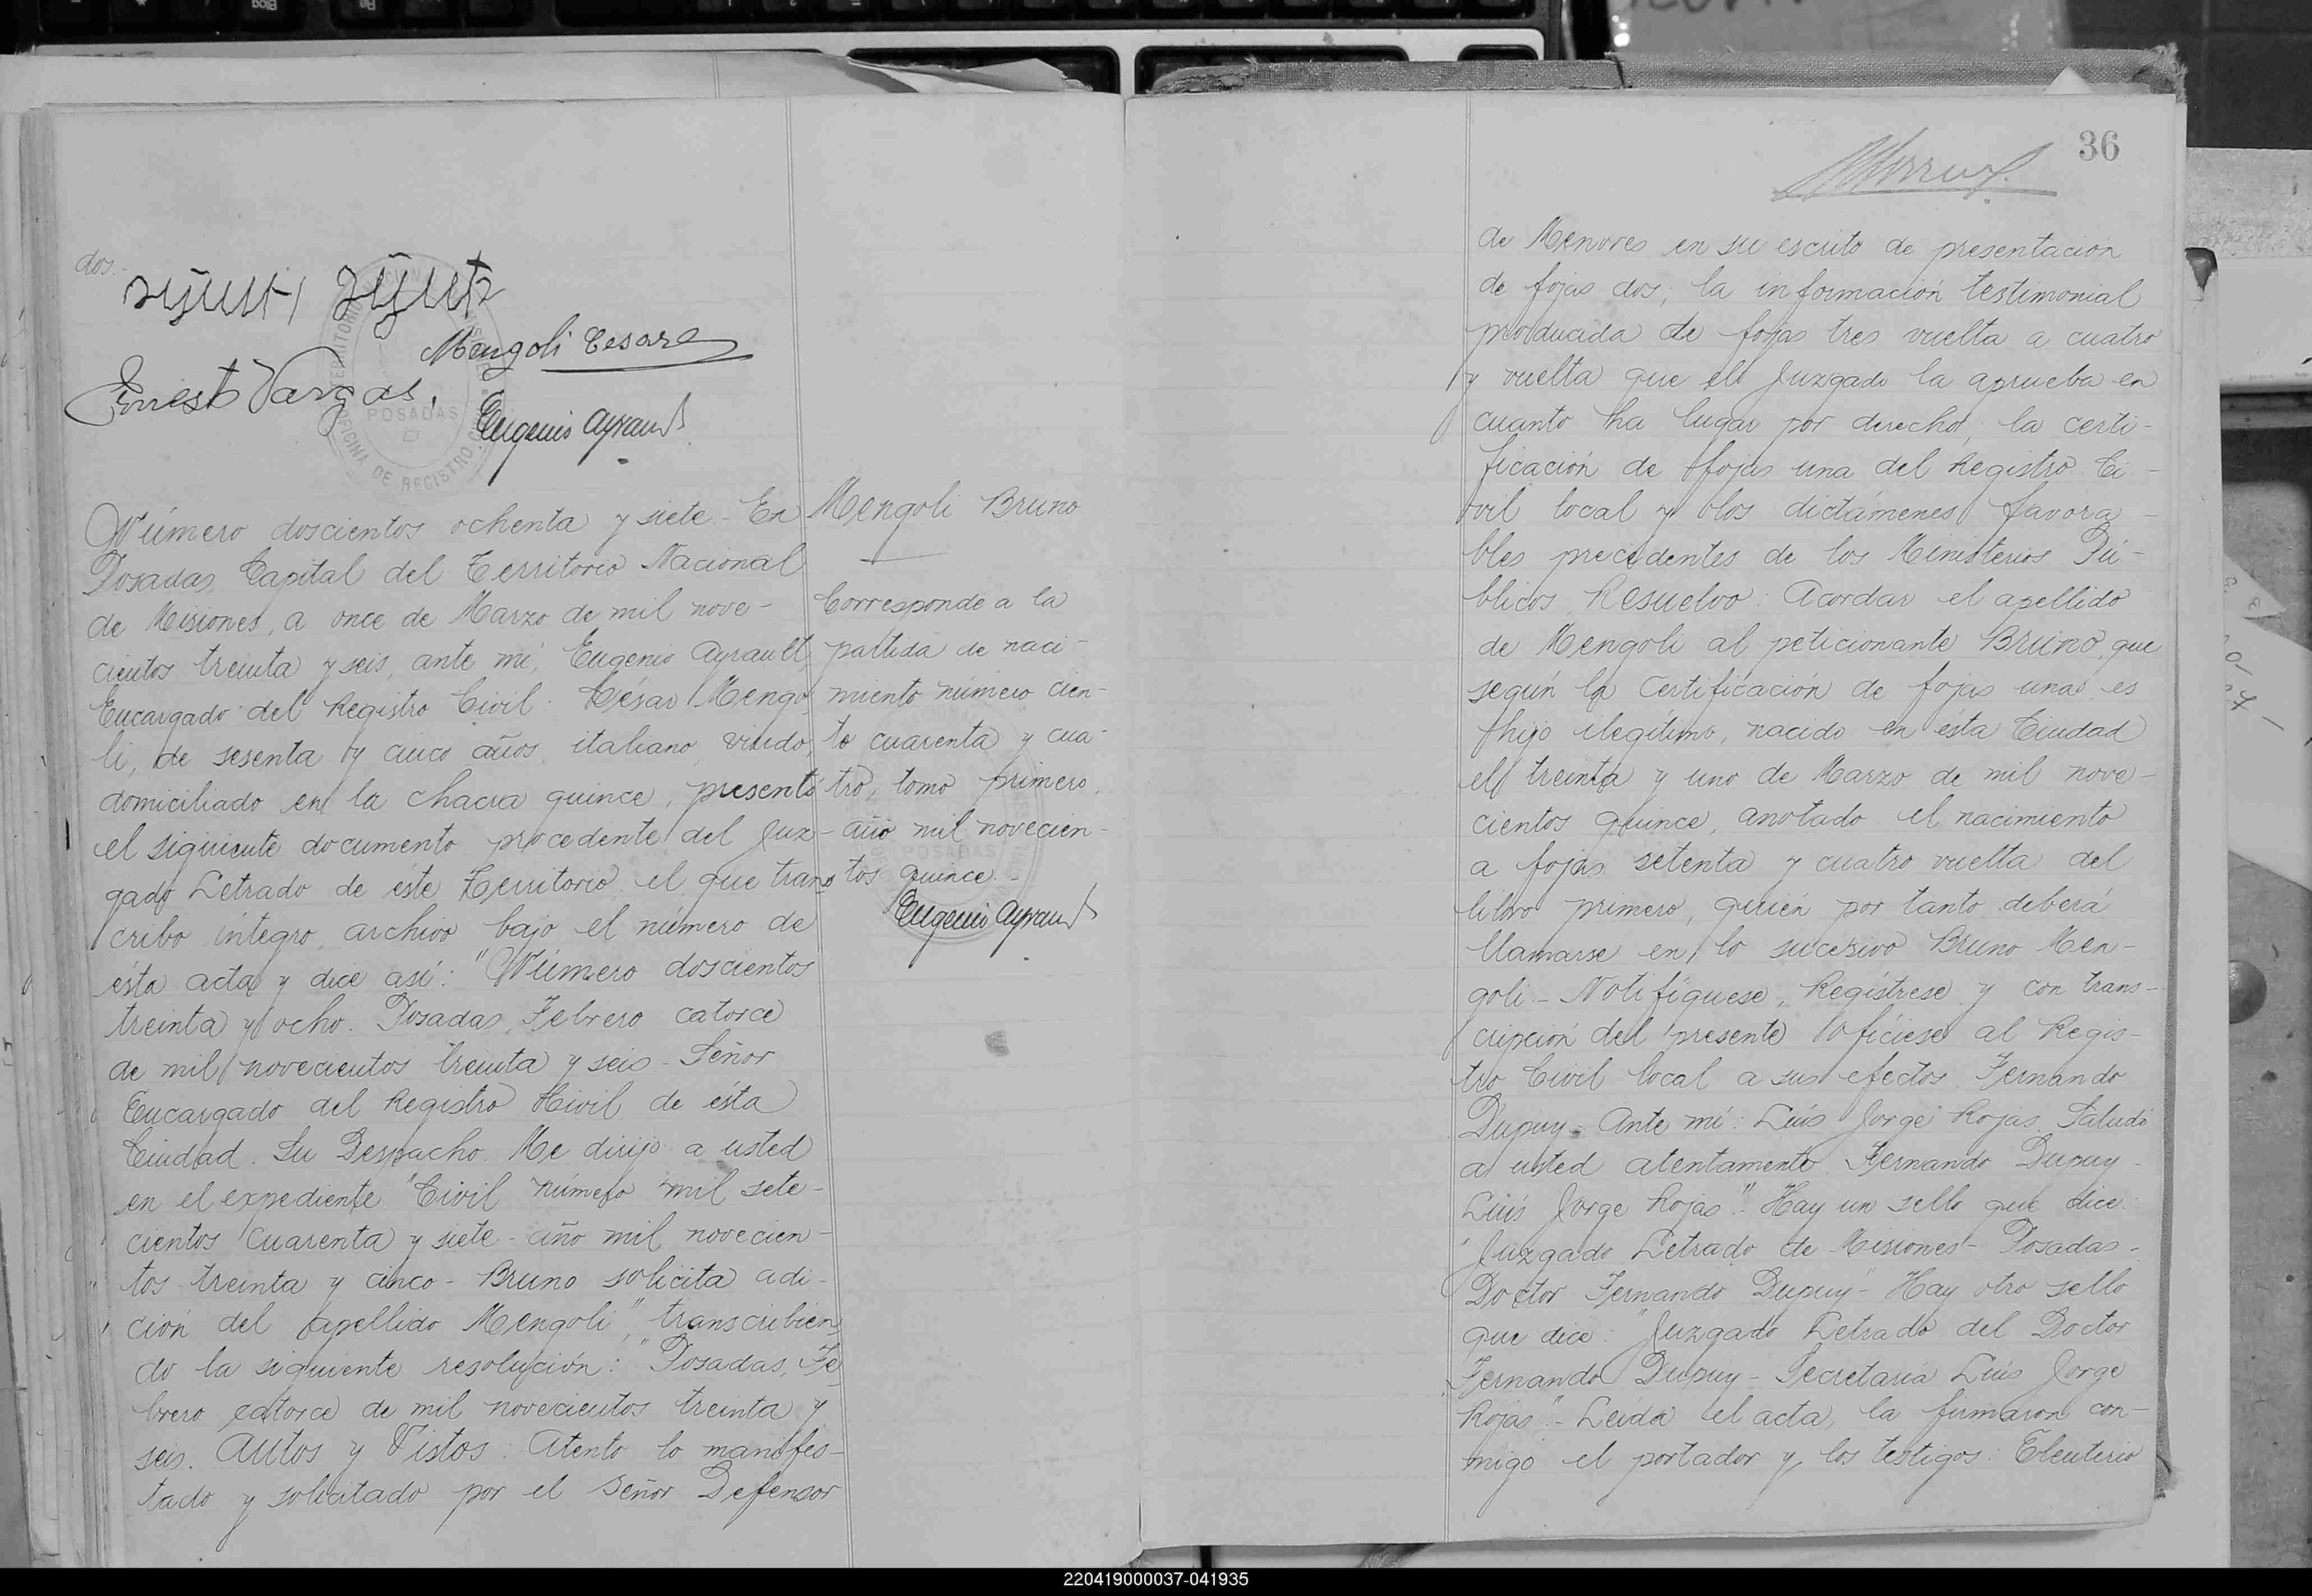 dos.-
Mengoli Cesare
Ernesto Vargas,
Eugenio Ayrault
POSADAS
OFICINA DE REGISTRO
Número doscientos ochenta y siete - En
Posadas, Capital del Territorio Nacional
de Misiones, a once de Marzo de mil nove-
cientos treinta y seis, ante mí, Eugenio Ayrault
Encargado del Registro Civil: César Mengo
li, de sesenta y cinco años, italiano, viudo,
domiciliado en la chacra quince, presentó
el siguiente documento procedente del Juz-
gado Letrado de éste Territorio el que trans
cribo íntegro, archivo bajo el número de
ésta acta y dice así: "Número doscientos
treinta y ocho. Posadas, Febrero catorce
de mil novecientos treinta y seis - Señor
Encargado del Registro Civil de ésta
Ciudad. Su Despacho. Me dirijo a usted
en el expediente "Civil número mil sete-
cientos cuarenta y siete - año mil novecien-
tos treinta y cinco - Bruno solicita adi-
ción del apellido Mengoli", transcribien
do la siguiente resolución: "Posadas, Fe
brero catorce de mil novecientos treinta y
seis. Autos y Vistos: Atento lo manifes-
tado y solicitado por el Señor Defensor
Mengoli Bruno
Corresponde a la
partida de naci-
miento número cien-
to cuarenta y cua-
tro, tomo primero,
año mil novecien-
tos quince.-
Eugenio Ayrault
POSADAS
36
de Menores en su escrito de presentación
de fojas dos; la información testimonial
producida de fojas tres vuelta a cuatro
y vuelta que el Juzgado la aprueba en
cuanto ha lugar por derecho; la certi-
ficación de fojas una del Registro Ci-
vil local y los dictámenes favora-
bles precedentes de los Ministerios Pú-
blicos, Resuelvo: Acordar el apellido
de Mengoli al peticionante Bruno, que
según la certificación de fojas una es
hijo ilegítimo, nacido en ésta Ciudad
el treinta y uno de Marzo de mil nove-
cientos quince, anotado el nacimiento
a fojas setenta y cuatro vuelta del
libro primero, quién por tanto deberá
llamarse en lo sucesivo Bruno Men-
goli - Notifíquese, Regístrese y con trans-
cripción del presente ofíciese al Regis-
tro Civil local a sus efectos. Fernando
Dupuy - Ante mí: Luis Jorge Rojas. Saludo
a usted atentamente. Fernando Dupuy -
Luis Jorge Rojas".- Hay un sello que dice:
"Juzgado Letrado de Misiones - Posadas -
Doctor Fernando Dupuy" - Hay otro sello
que dice: "Juzgado Letrado del Doctor
Fernando Dupuy - Secretaría Luis Jorge
Rojas".- Leida el acta, la firmaron con-
migo el portador y los testigos: Eleuterio
220419000037-041935